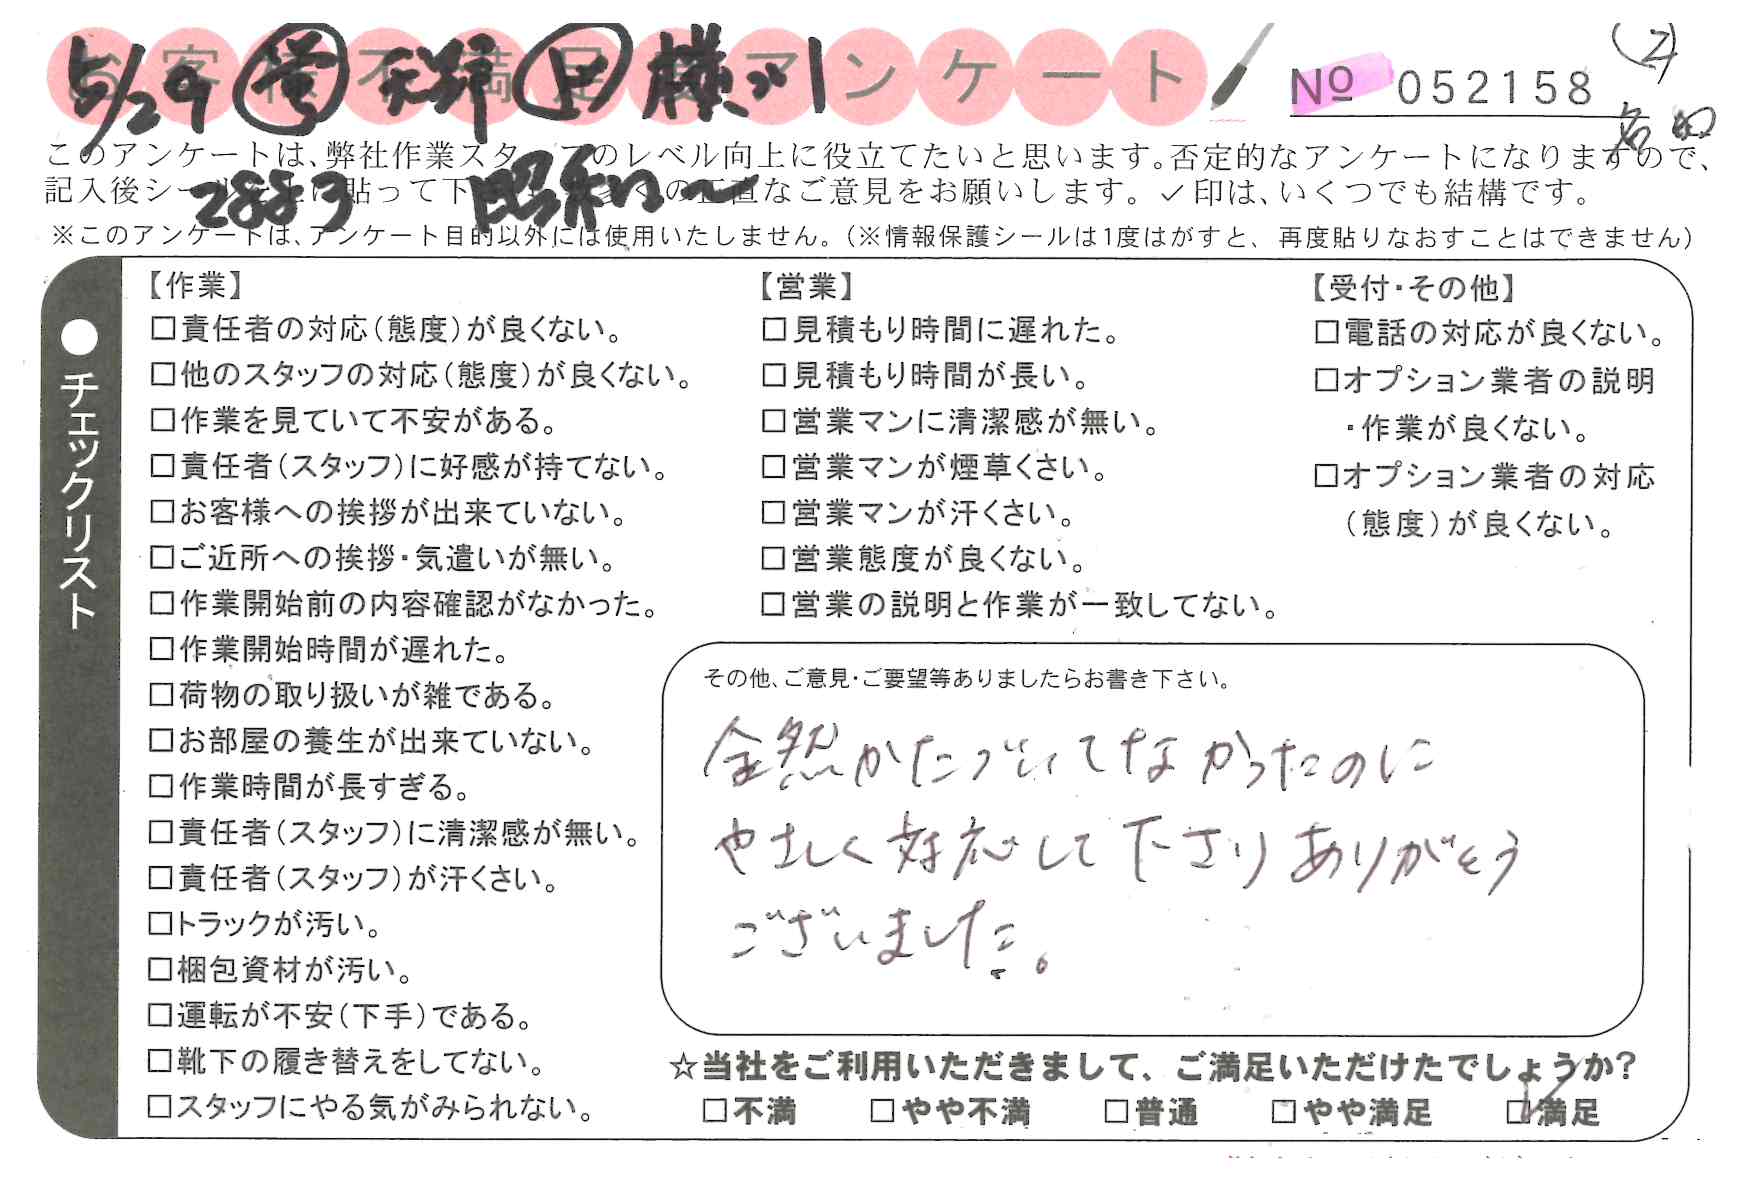 お客様不満足度アンケート
№ 052158
5/29 営 天野 上 横川
名和
28883 昭和
このアンケートは、弊社作業スタッフのレベル向上に役立てたいと思います。否定的なアンケートになりますので、
記入後シールを上に貼って下 多くの正直なご意見をお願いします。✓印は、いくつでも結構です。
※このアンケートは、アンケート目的以外には使用いたしません。(※情報保護シールは1度はがすと、再度貼りなおすことはできません)
●チェックリスト
【作業】
□責任者の対応(態度)が良くない。
□他のスタッフの対応(態度)が良くない。
□作業を見ていて不安がある。
□責任者(スタッフ)に好感が持てない。
□お客様への挨拶が出来ていない。
□ご近所への挨拶・気遣いが無い。
□作業開始前の内容確認がなかった。
□作業開始時間が遅れた。
□荷物の取り扱いが雑である。
□お部屋の養生が出来ていない。
□作業時間が長すぎる。
□責任者(スタッフ)に清潔感が無い。
□責任者(スタッフ)が汗くさい。
□トラックが汚い。
□梱包資材が汚い。
□運転が不安(下手)である。
□靴下の履き替えをしてない。
□スタッフにやる気がみられない。
【営業】
□見積もり時間に遅れた。
□見積もり時間が長い。
□営業マンに清潔感が無い。
□営業マンが煙草くさい。
□営業マンが汗くさい。
□営業態度が良くない。
□営業の説明と作業が一致してない。
【受付・その他】
□電話の対応が良くない。
□オプション業者の説明
・作業が良くない。
□オプション業者の対応
(態度)が良くない。
その他、ご意見・ご要望等ありましたらお書き下さい。
全然かたづいてなかったのに
やさしく対応して下さりありがとう
ございました。
☆当社をご利用いただきまして、ご満足いただけたでしょうか?
□不満 □やや不満 □普通 □やや満足 ☑満足